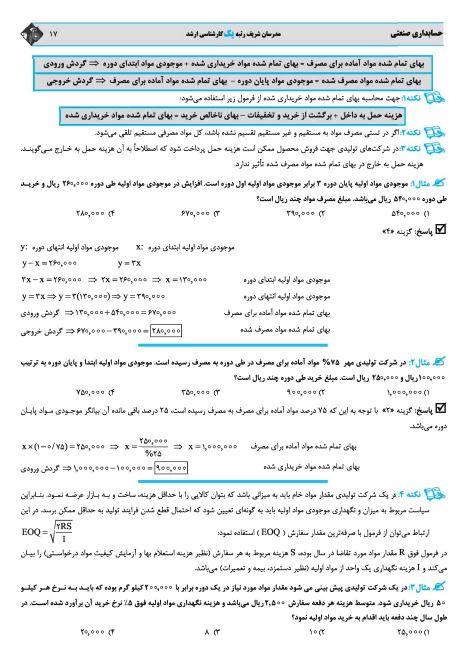 حسابداری صنعتی
مدرسان شریف رتبه یک کارشناسی ارشد
۱۷
بهای تمام شده مواد آماده برای مصرف = بهای تمام شده مواد خریداری شده + موجودی مواد ابتدای دوره ⇒ گردش ورودی
بهای تمام شده مواد مصرف شده = موجودی مواد پایان دوره - بهای تمام شده مواد آماده برای مصرف ⇒ گردش خروجی
نکته۱: جهت محاسبه بهای تمام شده مواد خریداری شده از فرمول زیر استفاده می‌شود:
هزینه حمل به داخل + برگشت از خرید و تخفیفات – بهای ناخالص خرید = بهای تمام شده مواد خریداری شده
نکته۲: اگر در تستی مصرف مواد به مستقیم و غیر مستقیم تقسیم نشده باشد، کل مواد مصرفی مستقیم تلقی می‌شود.
نکته۳: در شرکت‌های تولیدی جهت فروش محصول ممکن است هزینه حمل پرداخت شود که اصطلاحاً به آن هزینه حمل به خارج می‌گویند.
هزینه حمل به خارج در بهای تمام شده مواد مصرف شده تأثیر ندارد.
مثال۱: موجودی مواد اولیه پایان دوره ۳ برابر موجودی مواد اولیه اول دوره است. افزایش در موجودی مواد اولیه طی دوره ۲۶۰,۰۰۰ ریال و خرید
طی دوره ۵۴۰,۰۰۰ ریال می‌باشد. مبلغ مصرف مواد چند ریال است؟
۱) ۵۴۰,۰۰۰ ۲) ۳۹۰,۰۰۰ ۳) ۶۷۰,۰۰۰ ۴) ۲۸۰,۰۰۰
پاسخ: گزینه «۴»
موجودی مواد اولیه ابتدای دوره :x موجودی مواد اولیه انتهای دوره :y
y – x = ۲۶۰,۰۰۰ y = ۳x
موجودی مواد اولیه ابتدای دوره ۳x – x = ۲۶۰,۰۰۰ ⇒ ۲x = ۲۶۰,۰۰۰ ⇒ x = ۱۳۰,۰۰۰
موجودی مواد اولیه انتهای دوره y = ۳x ⇒ y = ۳(۱۳۰,۰۰۰) ⇒ y = ۳۹۰,۰۰۰
بهای تمام شده مواد آماده برای مصرف گردش ورودی ⇒ ۱۳۰,۰۰۰ + ۵۴۰,۰۰۰ = ۶۷۰,۰۰۰
بهای تمام شده مواد مصرف شده گردش خروجی ⇒ ۶۷۰,۰۰۰ – ۳۹۰,۰۰۰ = ۲۸۰,۰۰۰
مثال۲: در شرکت تولیدی مهر ۷۵% مواد آماده برای مصرف در طی دوره به مصرف رسیده است. موجودی مواد اولیه ابتدا و پایان دوره به ترتیب
۱۰۰,۰۰۰ ریال و ۲۵۰,۰۰۰ ریال است. مبلغ خرید طی دوره چند ریال است؟
۱) ۱,۰۰۰,۰۰۰ ۲) ۹۰۰,۰۰۰ ۳) ۳۵۰,۰۰۰ ۴) ۷۵۰,۰۰۰
پاسخ: گزینه «۲» با توجه به این که ۷۵ درصد مواد آماده برای مصرف به مصرف رسیده است، ۲۵ درصد باقی مانده آن بیانگر موجودی مواد پایان
دوره می‌باشد.
بهای تمام شده مواد آماده برای مصرف x × (۱ – ۰/۷۵) = ۲۵۰,۰۰۰ ⇒ x = ۲۵۰,۰۰۰ / %۲۵ ⇒ x = ۱,۰۰۰,۰۰۰
بهای تمام شده مواد خریداری شده گردش ورودی ⇒ ۱,۰۰۰,۰۰۰ – ۱۰۰,۰۰۰ = ۹۰۰,۰۰۰
نکته ۴: در یک شرکت تولیدی مقدار مواد خام باید به میزانی باشد که بتوان کالایی را با حداقل هزینه، ساخت و به بازار عرضه نمود. بنابراین
سیاست مربوط به میزان و نگهداری موجودی مواد اولیه باید به گونه‌ای تعیین شود که احتمال قطع شدن فرایند تولید به حداقل ممکن برسد. در این
ارتباط می‌توان از فرمول با صرفه‌ترین مقدار سفارش (EOQ) استفاده نمود: EOQ = √(۲RS / I)
در فرمول فوق R مقدار مواد مورد تقاضا در سال بوده، S هزینه مربوط به هر سفارش (نظیر هزینه استعلام بها و آزمایش کیفیت مواد درخواستی) را بیان
می‌کند و I هزینه نگهداری یک واحد از مواد اولیه (نظیر دستمزد، بیمه و تعمیرات) می‌باشد.
مثال۳: در یک شرکت تولیدی پیش بینی می شود مقدار مواد مورد نیاز در یک دوره برابر با ۲۰۰,۰۰۰ کیلو گرم بوده که باید به نرخ هر کیلو
۵۰ ریال خریداری شود. متوسط هزینه هر دفعه سفارش ۲,۵۰۰ ریال می‌باشد و هزینه نگهداری مواد اولیه فوق ۵٪ نرخ خرید آن برآورد شده است. در
طول سال چند دفعه باید اقدام به خرید مواد اولیه نمود؟
۱) ۲۵,۰۰۰ ۲) ۱۰ ۳) ۸ ۴) ۲۰,۰۰۰